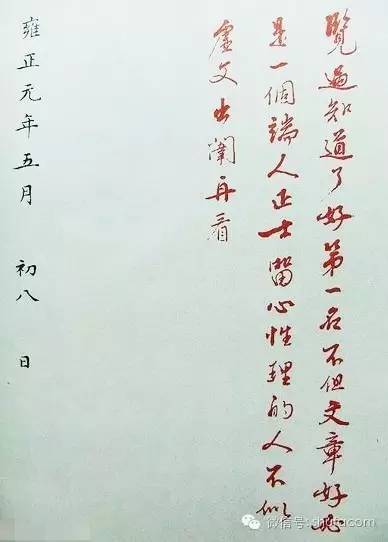 覽過知道了好第一名不但文章好必
是一個端人正士留心性理的人不似
虛文出闈再看
雍正元年五月 初八 日
微信号: shufa.com